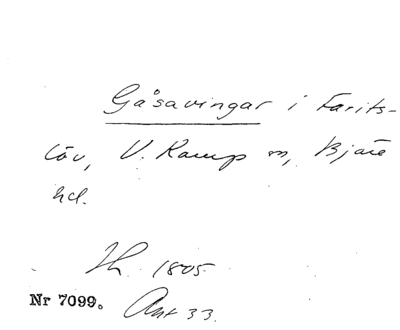 Gåsavingar i Farits-
löv, V. Karup sn, Bjäre
hd.
Th. 1805.
Nr 7099. Ant 33.